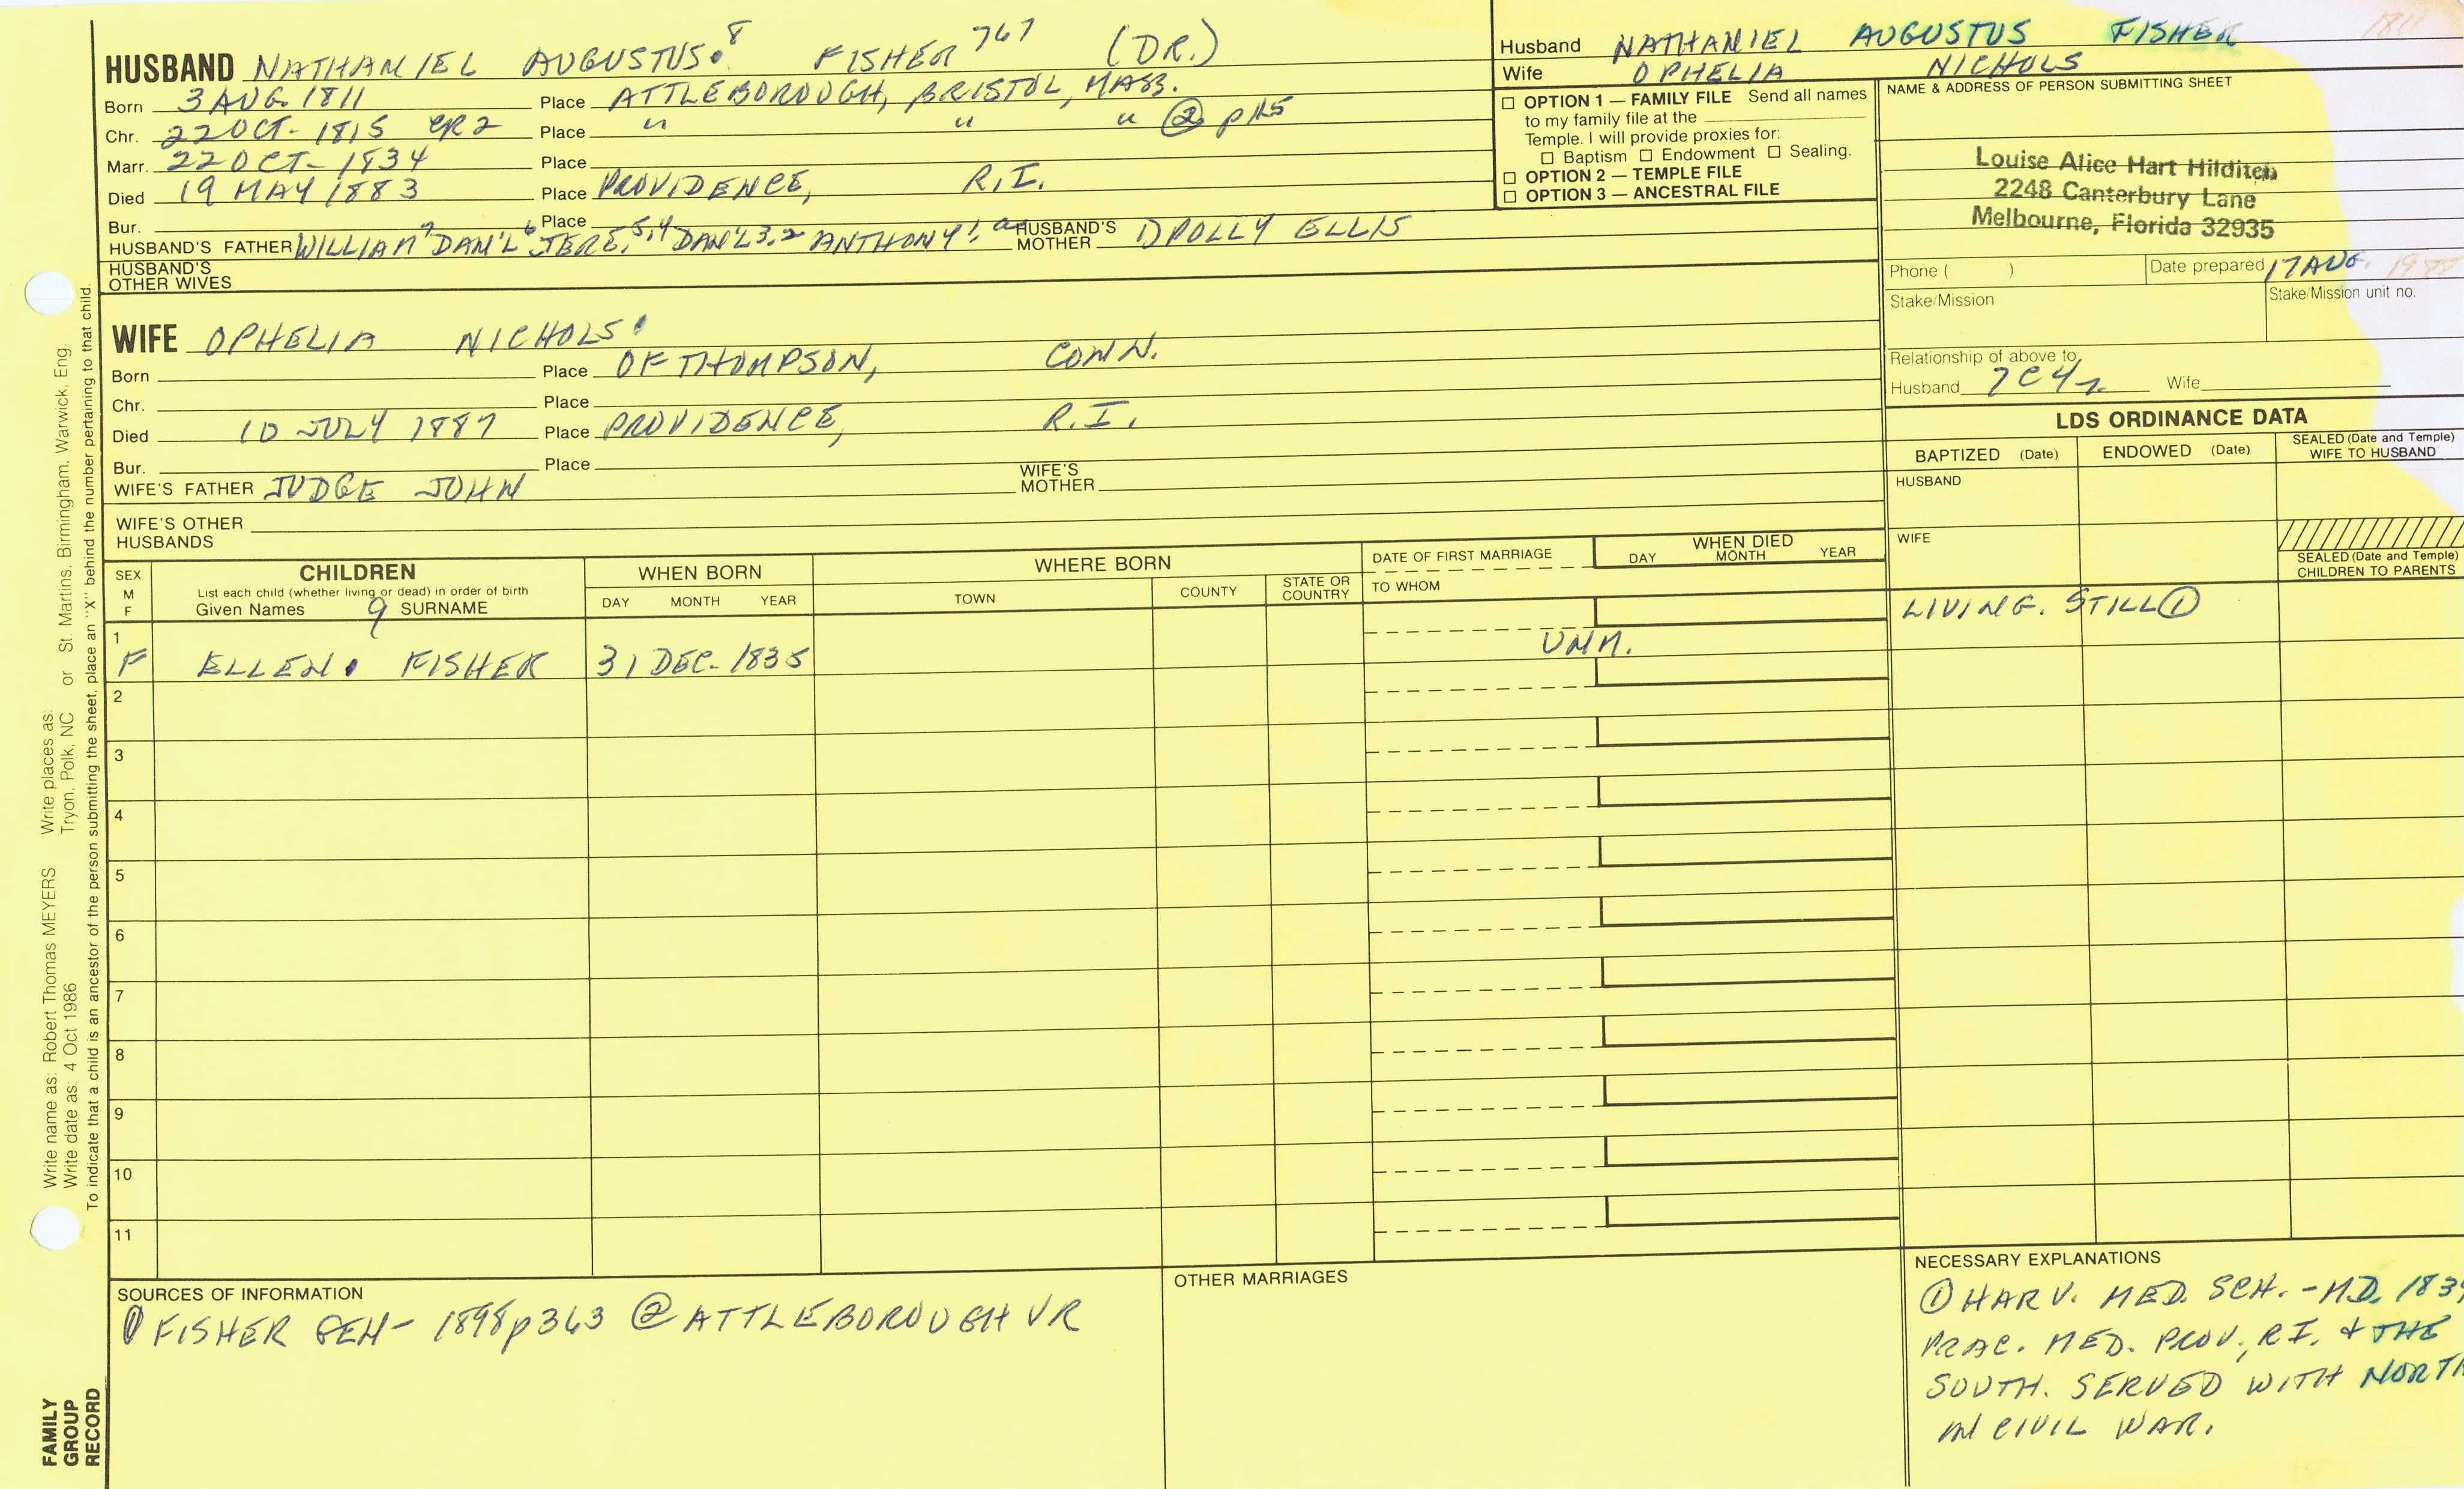 HUSBAND NATHANIEL AUGUSTUS. 8 FISHER 767 (DR.)
Born 3 AUG. 1811 Place ATTLEBOROUGH, BRISTOL, MASS.
Chr. 22 OCT- 1815 GR2 Place " " " ② p
Marr. 22 OCT- 1834 Place
Died 19 MAY 1883 Place PROVIDENCE, R.I.
Bur. Place
HUSBAND'S FATHER WILLIAM 7 DAN'L 6 JERE. 5,4 DAN'L 3,2 ANTHONY 1. HUSBAND'S MOTHER 1) POLLY ELLIS
HUSBAND'S OTHER WIVES
Husband NATHANIEL AUGUSTUS FISHER 1811
Wife OPHELIA NICHOLS
☐ OPTION 1 — FAMILY FILE Send all names
to my family file at the
Temple. I will provide proxies for:
☐ Baptism ☐ Endowment ☐ Sealing.
☐ OPTION 2 — TEMPLE FILE
☐ OPTION 3 — ANCESTRAL FILE
NAME & ADDRESS OF PERSON SUBMITTING SHEET
Louise Alice Hart Hilditch
2248 Canterbury Lane
Melbourne, Florida 32935
Phone ( ) Date prepared 17 AUG.
Stake/Mission Stake/Mission unit no.
Relationship of above to
Husband 7C4r Wife
WIFE OPHELIA NICHOLS.
Born Place OF THOMPSON, CONN.
Chr. Place
Died 10 JULY 1887 Place PROVIDENCE, R.I.
Bur. Place
WIFE'S FATHER JUDGE JOHN WIFE'S MOTHER
WIFE'S OTHER HUSBANDS
LDS ORDINANCE DATA
BAPTIZED (Date) ENDOWED (Date) SEALED (Date and Temple) WIFE TO HUSBAND
HUSBAND
WIFE
SEALED (Date and Temple) CHILDREN TO PARENTS
SEX M F
CHILDREN
List each child (whether living or dead) in order of birth
Given Names 9 SURNAME
WHEN BORN
DAY MONTH YEAR
WHERE BORN
TOWN COUNTY STATE OR COUNTRY
DATE OF FIRST MARRIAGE
TO WHOM
WHEN DIED
DAY MONTH YEAR
LIVING. STILL ①
1
F ELLEN. FISHER 31 DEC- 1835 UNM.
2
3
4
5
6
7
8
9
10
11
SOURCES OF INFORMATION
① FISHER GEN- 1898 p363 ② ATTLEBOROUGH VR
OTHER MARRIAGES
NECESSARY EXPLANATIONS
① HARV. MED. SCH. - MD. 183
PRAC. MED. PROV., R.I. + THE
SOUTH. SERVED WITH NORTH
IN CIVIL WAR.
Write name as: Robert Thomas MEYERS Write places as: St. Martins, Birmingham, Warwick, Eng.
Write date as: 4 Oct 1986 Tryon, Polk, NC or
To indicate that a child is an ancestor of the person submitting the sheet, place an "X" behind the number pertaining to that child.
FAMILY
GROUP
RECORD